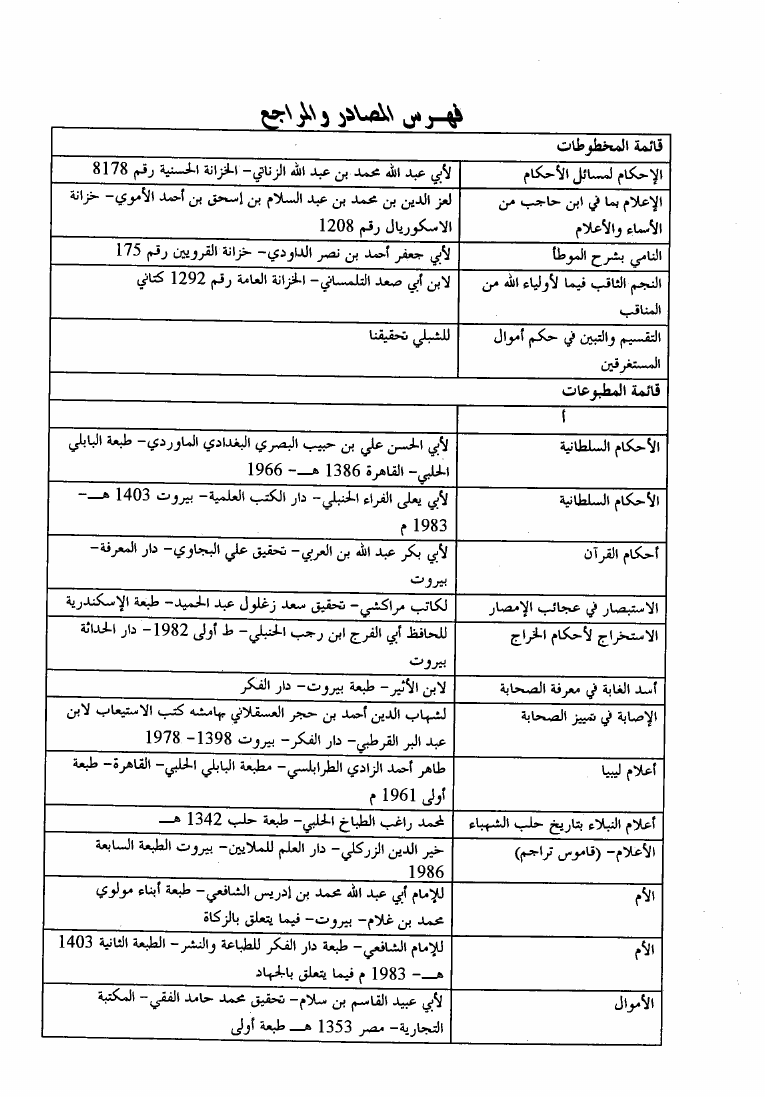 فهرس المصادر والمراجع
قائمة المخطوطات
الإحكام لمسائل الأحكام لأبي عبد الله محمد بن عبد الله الزناتي- الخزانة الحسنية رقم 8178
الإعلام بما في ابن حاجب من لعز الدين بن محمد بن عبد السلام بن إسحق بن أحمد الأموي- خزانة
الأسماء والأعلام الاسكوريال رقم 1208
النامي بشرح الموطأ لأبي جعفر أحمد بن نصر الداودي- خزانة القرويين رقم 175
النجم الثاقب فيما لأولياء الله من لابن أبي صعد التلمساني- الخزانة العامة رقم 1292 كتاني
المناقب
التقسيم والتبين في حكم أموال للشبلي تحقيقنا
المستغرقين
قائمة المطبوعات
أ
الأحكام السلطانية لأبي الحسن علي بن حبيب البصري البغدادي الماوردي- طبعة البابلي
الحلبي- القاهرة 1386 هـ- 1966
الأحكام السلطانية لأبي يعلى الفراء الحنبلي- دار الكتب العلمية- بيروت 1403 هـ-
1983 م
أحكام القرآن لأبي بكر عبد الله بن العربي- تحقيق علي البجاوي- دار المعرفة-
بيروت
الاستبصار في عجائب الإمصار لكاتب مراكشي- تحقيق سعد زغلول عبد الحميد- طبعة الإسكندرية
الاستخراج لأحكام الخراج للحافظ أبي الفرج ابن رجب الحنبلي- ط أولى 1982- دار الحداثة
بيروت
أسد الغابة في معرفة الصحابة لابن الأثير- طبعة بيروت- دار الفكر
الإصابة في تمييز الصحابة لشهاب الدين أحمد بن حجر العسقلاني بهامشه كتب الاستيعاب لابن
عبد البر القرطبي- دار الفكر- بيروت 1398- 1978
أعلام ليبيا طاهر أحمد الزادي الطرابلسي- مطبعة البابلي الحلبي- القاهرة- طبعة
أولى 1961 م
أعلام النبلاء بتاريخ حلب الشهباء لمحمد راغب الطباخ الحلبي- طبعة حلب 1342 هـ
الأعلام- (قاموس تراجم) خير الدين الزركلي- دار العلم للملايين- بيروت الطبعة السابعة
1986
الأم للإمام أبي عبد الله محمد بن إدريس الشافعي- طبعة أبناء مولوي
محمد بن غلام- بيروت- فيما يتعلق بالزكاة
الأم للإمام الشافعي- طبعة دار الفكر للطباعة والنشر- الطبعة الثانية 1403
هـ- 1983 م فيما يتعلق بالجهاد
الأموال لأبي عبيد القاسم بن سلام- تحقيق محمد حامد الفقي- المكتبة
التجارية- مصر 1353 هـ طبعة أولى